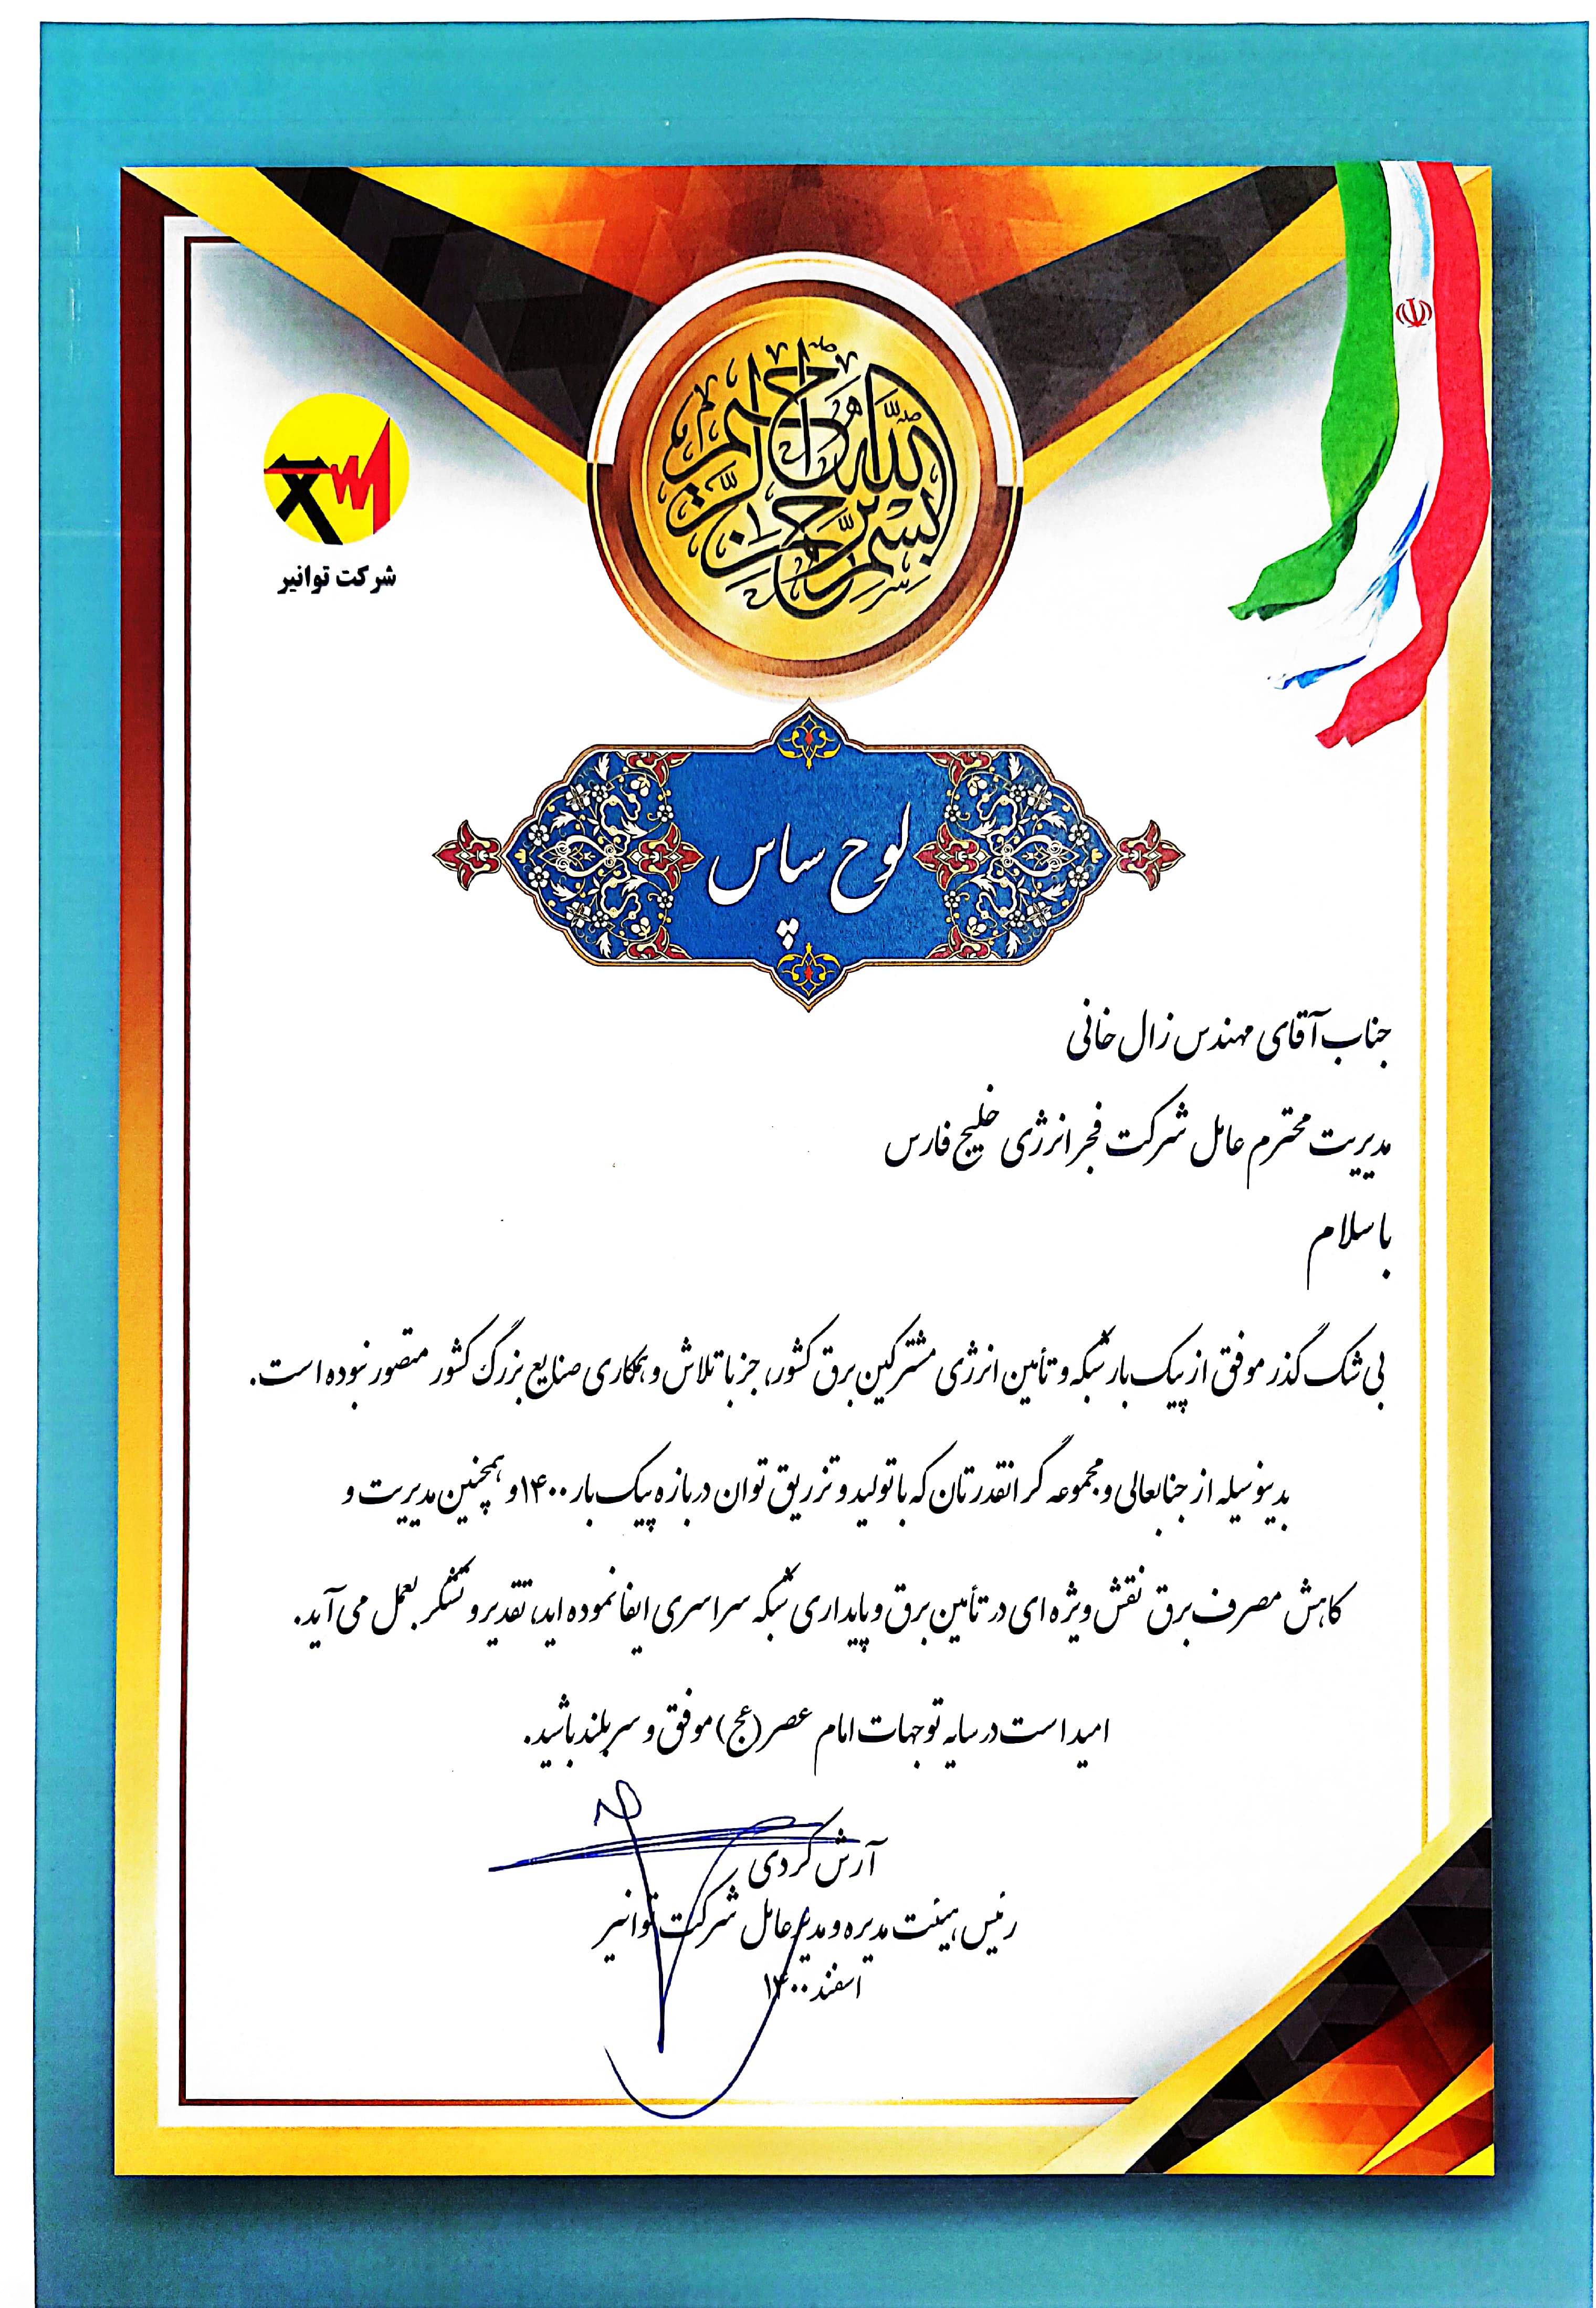 بسم الله الرحمن الرحيم
شرکت توانیر
لوح سپاس
جناب آقای مهندس زال خانی
مدیریت محترم عامل شرکت فجر انرژی خلیج فارس
با سلام
بی شک گذر موفق از پیک بار شبکه و تأمین انرژی مشترکین برق کشور، جز با تلاش و همکاری صنایع بزرگ کشور متصور نبوده است.
بدینوسیله از جنابعالی و مجموعه گرانقدرتان که با تولید و تزریق توان در بازه پیک بار ۱۴۰۰ و همچنین مدیریت و
کاهش مصرف برق نقش ویژه ای در تأمین برق و پایداری شبکه سراسری ایفا نموده اید، تقدیر و تشکر بعمل می آید.
امید است در سایه توجهات امام عصر (عج) موفق و سربلند باشید.
آرش کردی
رئیس هیئت مدیره و مدیرعامل شرکت توانیر
اسفند ۱۴۰۰